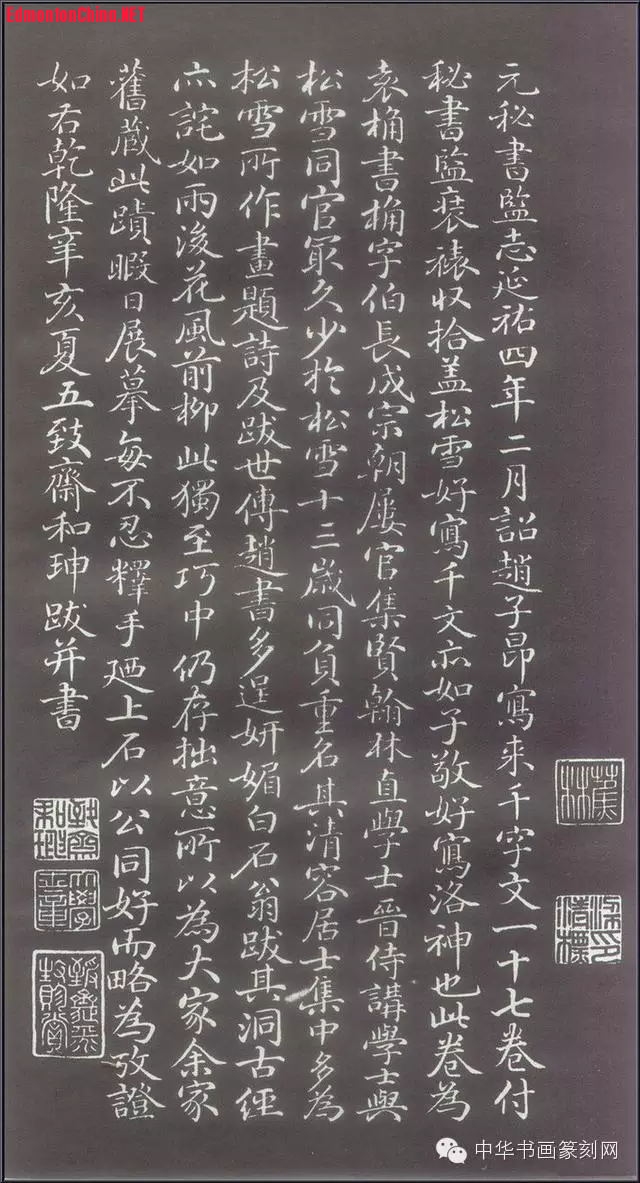 EdmontonChina.NET
元秘書監志延祐四年二月詔趙子昂寫来千字文一十七卷付
秘書監裘裱収拾盖松雪好寫千文亦如子敬好寫洛神也此卷為
袁桷書桷字伯長成宗朝屡官集賢翰林直學士晉侍講學士與
松雪同官冣久少於松雪十三歲同負重名其清容居士集中多為
松雪所作畫題詩及跋世傳趙書多逞妍媚白石翁跋其洞古經
亦詫如雨後花風前柳此獨至巧中仍存拙意所以為大家余家
舊藏此蹟暇日展摹每不忍釋手廼上石以公同好而略為攷證
如右乾隆辛亥夏五致齋和珅跋并書
蕉林
中华书画篆刻网